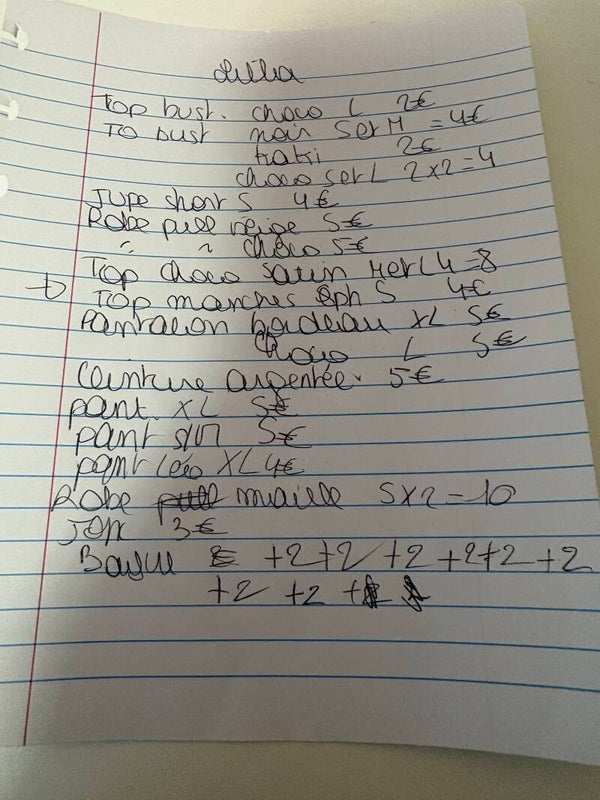 Top bust. choco L 2€
To bust noir S et M = 4€
kaki 2€
choco S et L 2x2=4
Jupe short S 4€
Robe pull neige 5€
" " choco 5€
Top choco satin M et L 4=8
Top manches S 4€
Pantalon bordeau XL 5€
Choco L 5€
Ceinture argentée 5€
pant. XL 5€
pant S/M 5€
pant Leo XL 4€
Robe maille 5x2=10
Top 3€
+2+2+2+2+2+2
+2 +2